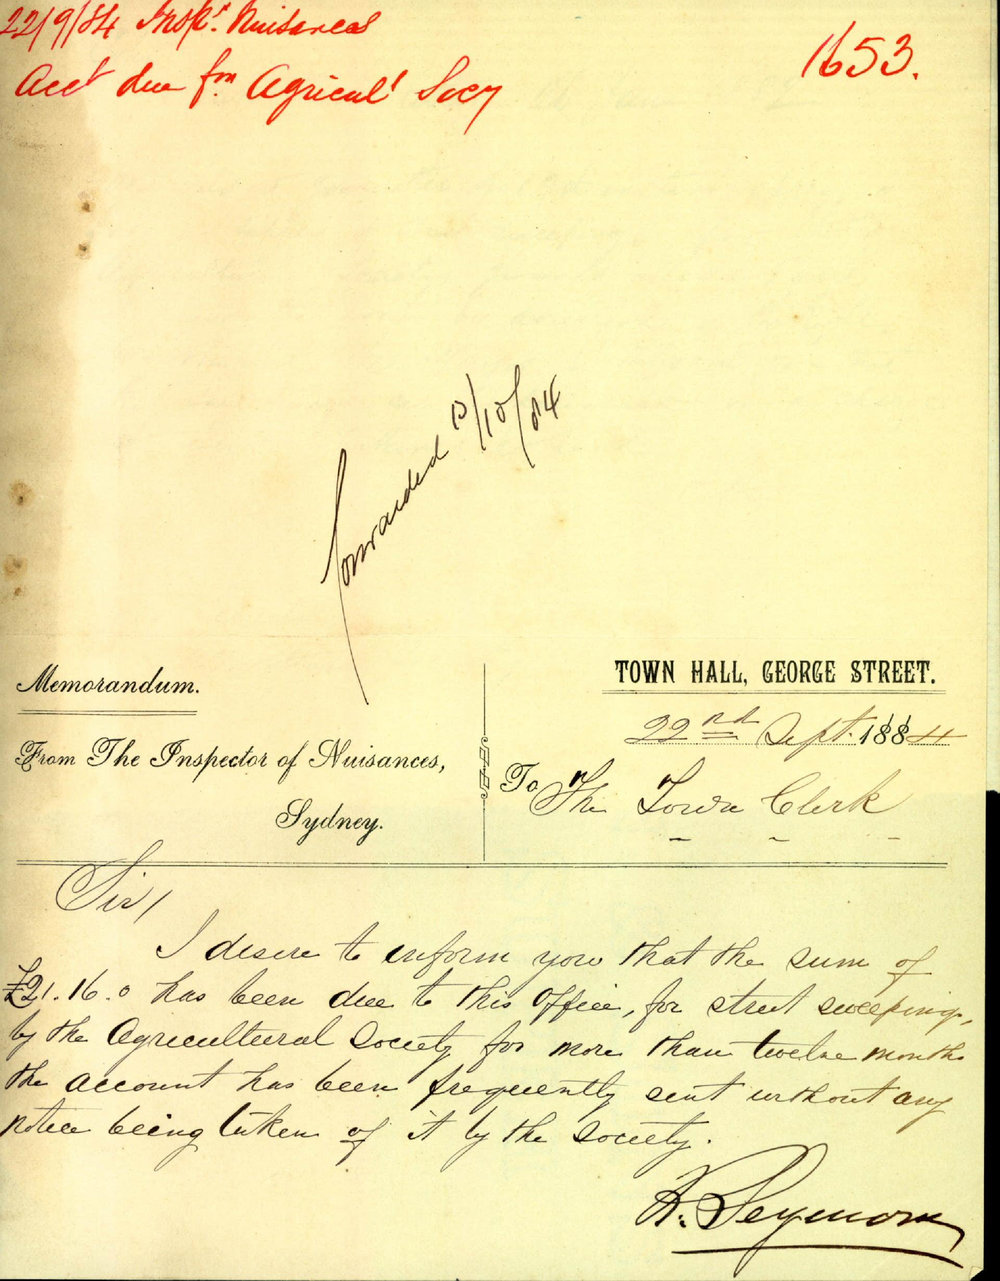 22/9/84 Inspr. Nuisances
Acct due fm Agricul' Socy
1653.
Forwarded 13/10/84
Memorandum.
TOWN HALL, GEORGE STREET.
22nd Sept. 1884
From The Inspector of Nuisances,
Sydney.
To The Town Clerk
Sir/
I desire to inform you that the sum of
£21.16.0 has been due to this office, for street sweeping,
by the Agricultural Society for more than twelve months
the account has been frequently sent without any
notice being taken of it by the Society.
R. Seymour